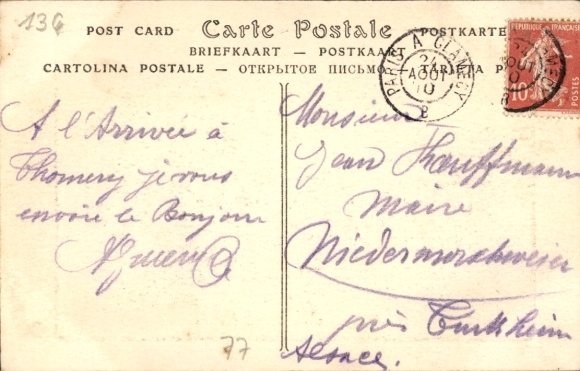 136
POST CARD Carte Postale POSTKARTE
BRIEFKAART — POSTKAART
CARTOLINA POSTALE — ОТКРЫТОЕ ПИСЬМО
PARIS A CLAMECY
24
AOUT
10
B
REPUBLIQUE FRANÇAISE
10
POSTES
A l'Arrivée à
Thomery je vous
envoie le Bonjour
Monsieur
Jean Kauffmann
Maire
Niedermorschweier
près Turkheim
Alsace.
77